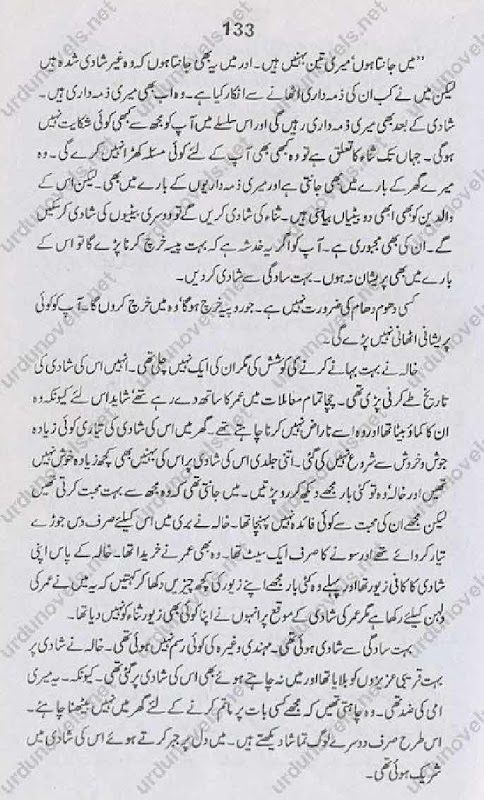 133
"میں جانتا ہوں' میری تین بہنیں ہیں۔ اور میں یہ بھی جانتا ہوں کہ وہ غیر شادی شدہ ہیں
لیکن میں نے کب ان کی ذمہ داری اٹھانے سے انکار کیا ہے۔ وہ اب بھی میری ذمہ داری ہیں۔
شادی کے بعد بھی میری ذمہ داری رہیں گی اور اس سلسلے میں آپ کو مجھ سے کبھی کوئی شکایت نہیں
ہوگی۔ جہاں تک ثناء کا تعلق ہے تو وہ کبھی بھی آپ کے لئے کوئی مسئلہ کھڑا نہیں کرے گی۔ وہ
میرے گھر کے بارے میں بھی جانتی ہے اور میری ذمہ داریوں کے بارے میں بھی۔ لیکن اس کے
والدین کو بھی ابھی دو بیٹیاں بیاہنی ہیں۔ ثناء کی شادی کریں گے تو دوسری بیٹیوں کی شادی کر سکیں
گے۔ ان کی بھی مجبوری ہے۔ آپ کو اگر یہ خدشہ ہے کہ بہت پیسہ خرچ کرنا پڑے گا تو اس کے
بارے میں بھی پریشان نہ ہوں۔ بہت سادگی سے شادی کر دیں۔
کسی دھوم دھام کی ضرورت نہیں ہے۔ جو روپیہ خرچ ہوگا' وہ میں خرچ کروں گا۔ آپ کو کوئی
پریشانی اٹھانی نہیں پڑے گی۔
خالہ نے بہت بہانے کرنے کی کوشش کی مگر ان کی ایک نہیں چلی تھی۔ انہیں اس کی شادی کی
تاریخ طے کرنی پڑی تھی۔ چچا تمام معاملات میں عمر کا ساتھ دے رہے تھے' شاید اس لئے کیونکہ وہ
ان کا کماؤ بیٹا تھا اور وہ اسے ناراض نہیں کرنا چاہتے تھے۔ گھر میں اس کی شادی کی تیاری کوئی زیادہ
جوش و خروش سے شروع نہیں کی گئی۔ اتنی جلدی اس کی شادی پر اس کی بہنیں بھی کچھ زیادہ خوش نہیں
تھیں اور خالہ' وہ تو کئی بار مجھے دیکھ کر رو پڑتیں۔ میں جانتی تھی کہ وہ مجھ سے بہت محبت کرتی تھیں
لیکن مجھے ان کی محبت سے کوئی فائدہ نہیں پہنچا تھا۔ خالہ نے بری میں اس کیلئے صرف دس جوڑے
تیار کروائے تھے اور سونے کا صرف ایک سیٹ تھا۔ وہ بھی عمر نے خریدا تھا۔ خالہ کے پاس اپنی
شادی کا کافی زیور تھا اور پہلے وہ کئی بار مجھے اپنے زیور کی کچھ چیزیں دکھا کر کہتیں کہ یہ میں نے عمر کی
دلہن کیلئے رکھا ہے مگر عمر کی شادی کے موقع پر انہوں نے اپنا کوئی بھی زیور ثناء کو نہیں دیا تھا۔
بہت سادگی سے شادی ہوئی تھی۔ مہندی وغیرہ کی کوئی رسم نہیں ہوئی تھی۔ خالہ نے شادی پر
بہت قریبی عزیزوں کو بلایا تھا اور میں نہ چاہتے ہوئے بھی اس کی شادی پر گئی تھی۔ کیونکہ۔ یہ میری
امی کی ضد تھی۔ وہ چاہتی تھیں کہ مجھے کسی بات پر ماتم کرنے کے لئے گھر میں نہیں بیٹھنا چاہئے۔
اس طرح صرف دوسرے لوگ تماشا دیکھتے ہیں۔ میں دل پر جبر کرتے ہوئے اس کی شادی میں
شریک ہوئی تھی۔
urdunovels.net